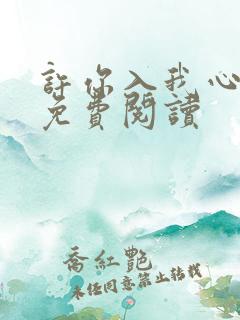 許你入我心
免費閱讀
喬紅艷
未经同意禁止转载